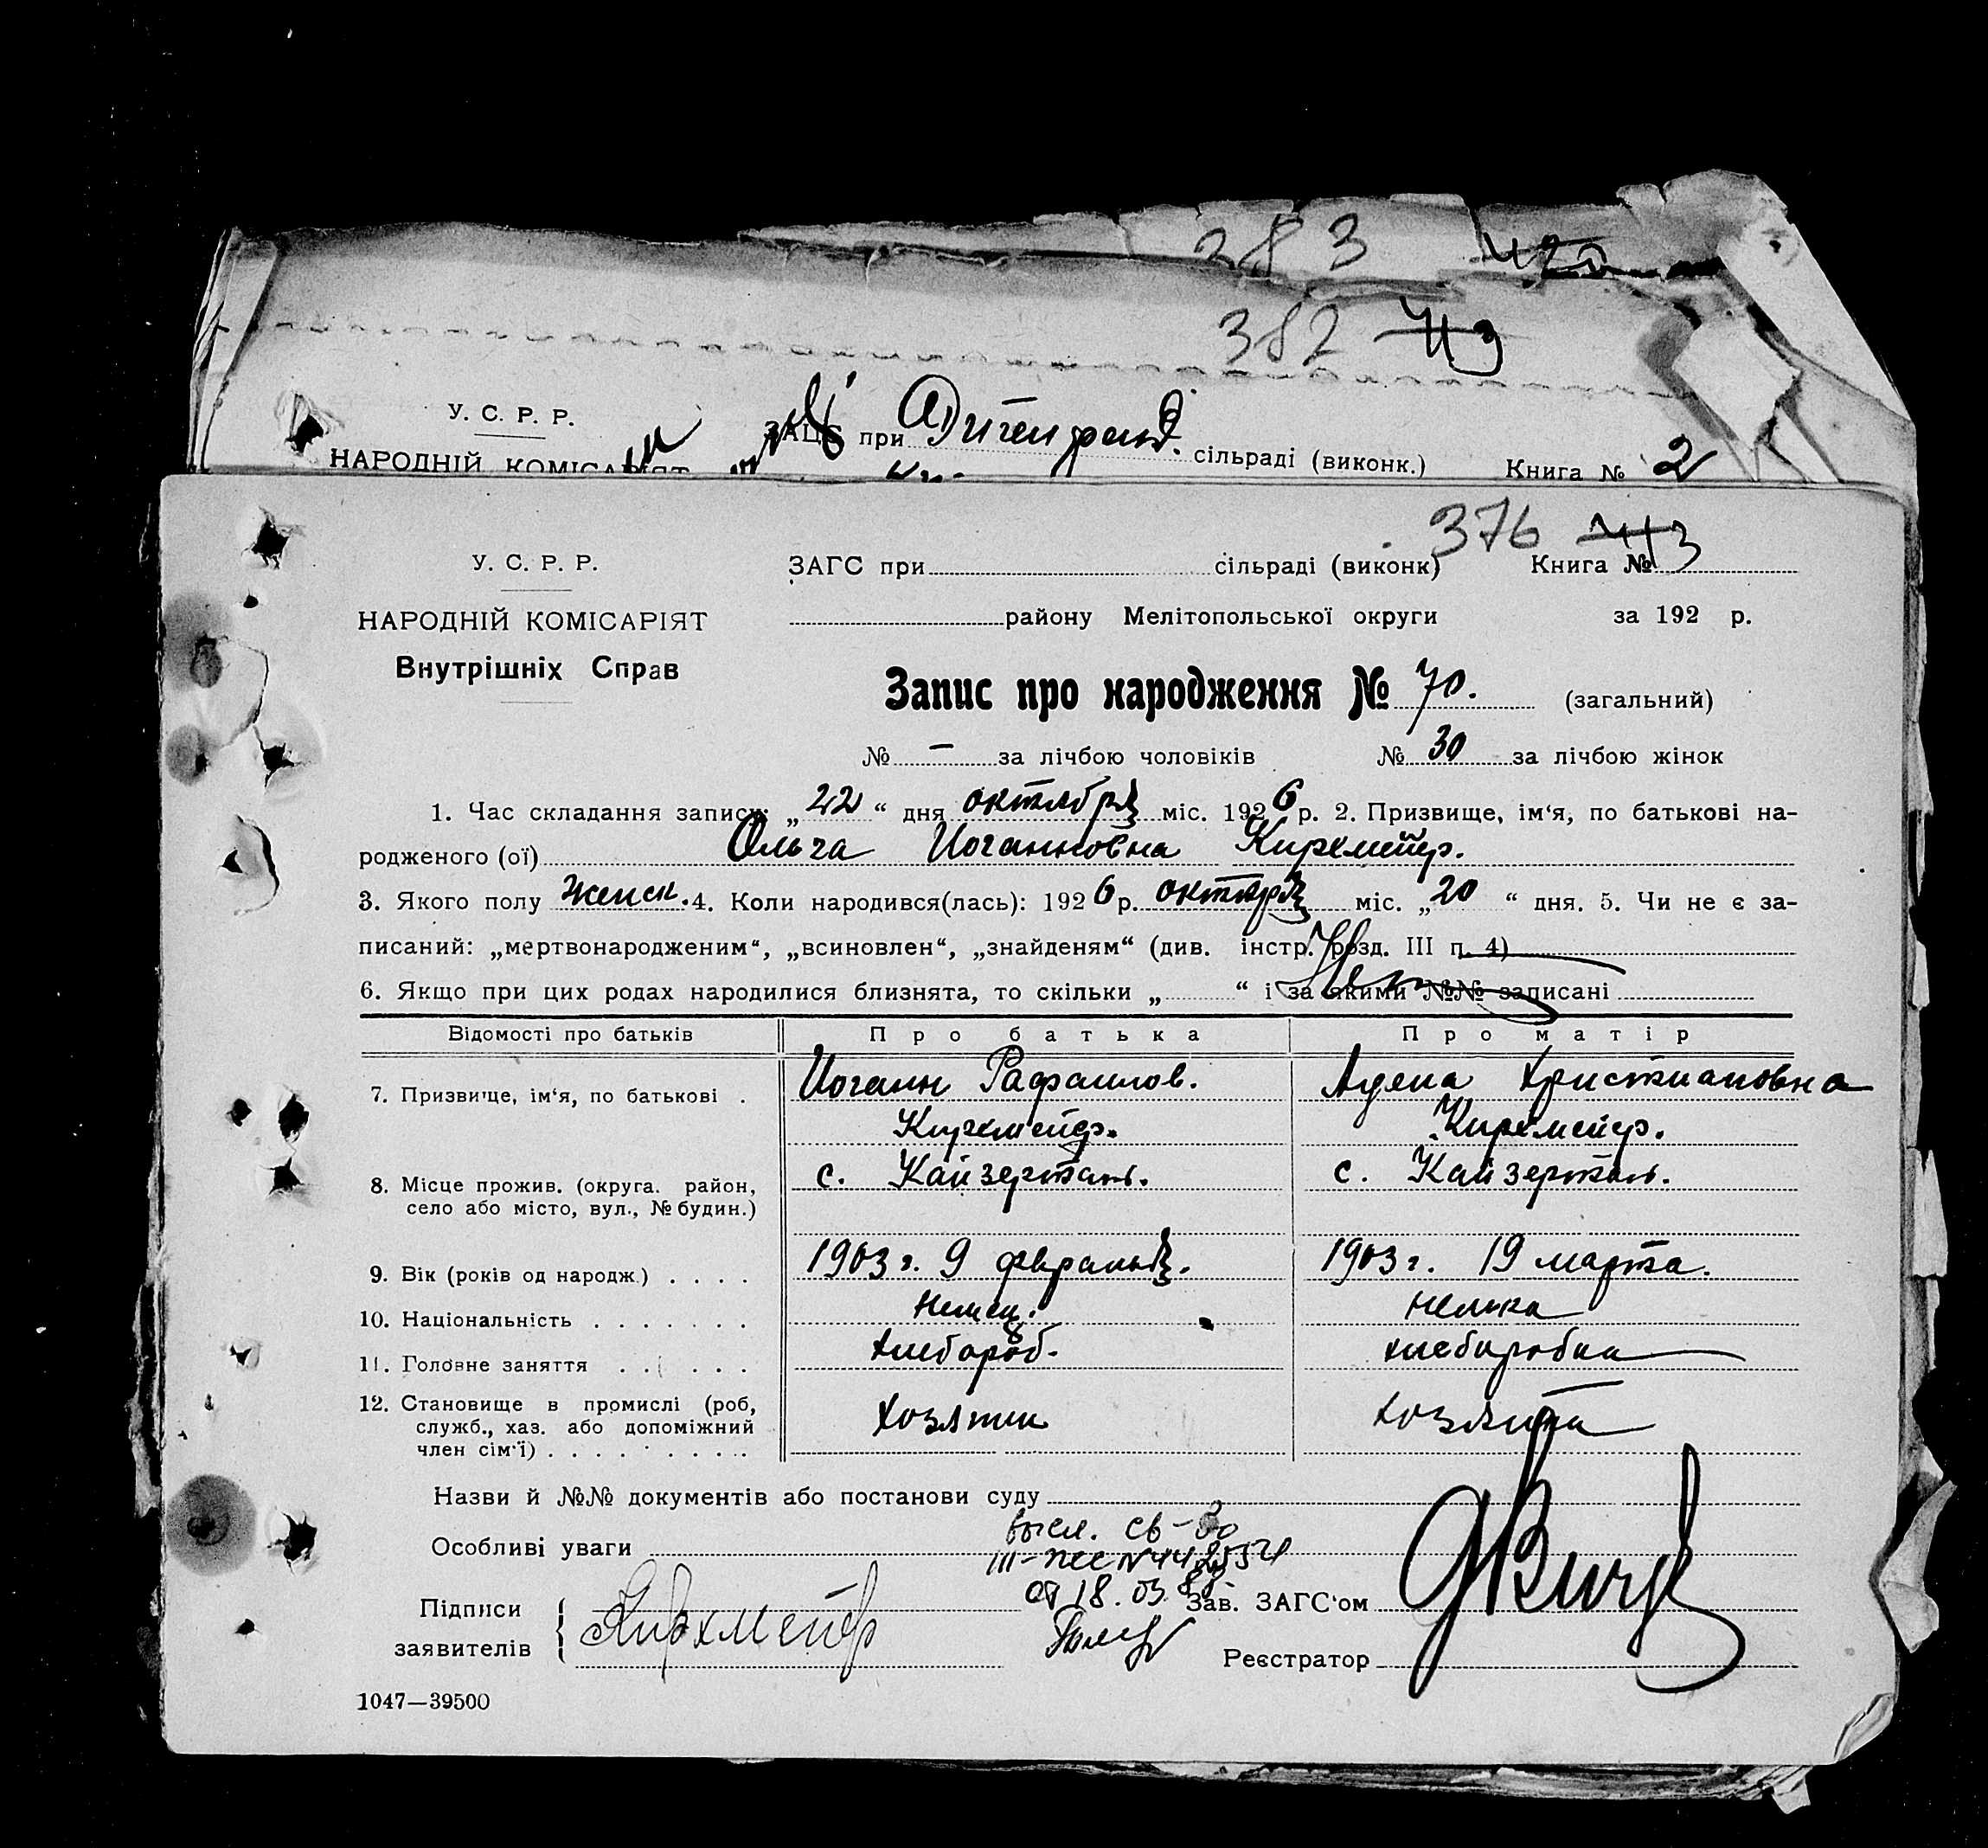 283 420
382 413
У. С. Р. Р.
ЗАЦС при сільраді (виконк.) Книга № 2
НАРОДНІЙ КОМІСАРІЯТ
376 413
У. С. Р. Р. ЗАГС при сільраді (виконк) Книга №
НАРОДНІЙ КОМІСАРІЯТ району Мелітопольської округи за 192 р.
Внутрішніх Справ
Запис про народження № 70. (загальний)
№ – за лічбою чоловіків № 30 за лічбою жінок
1. Час складання запису: „22“ дня октября міс. 1926 р. 2. Призвище, ім‘я, по батькові на-
родженого (ої) Ольга Иоганновна Кирхмейер.
3. Якого полу женск. 4. Коли народився(лась): 1926 р. октября міс. „20“ дня. 5. Чи не є за-
писаний: „мертвонародженим“, „всиновлен“, „знайденям“ (див. інстр. розд. III п. 4)
Нет
6. Якщо при цих родах народилися близнята, то скільки „ “ і за якими №№ записані
Відомості про батьків Про батька Про матір
7. Призвище, ім‘я, по батькові . Иоганн Рафаилов. Адена Христиановна
Кирхмейер. Кирхмейер.
8. Місце прожив. (округа. район, с. Кайзерталь. с. Кайзерталь.
село або місто, вул., № будин.)
9. Вік (років од народж.) . . . . 1903 г. 9 февраля. 1903 г. 19 марта.
10. Національність . . . . . . . Немец. немка
11. Головне заняття . . . . . хлебороб. хлеборобка
12. Становище в промислі (роб, хозяин хозяйка
служб., хаз. або допоміжний
член сім‘ї) . . . . . . . . .
Назви й №№ документів або постанови суду
высл. св-во
Особливі уваги
от 18.03.88
Підписи Кирхмейер Зав. ЗАГС‘ом
заявителів Реєстратор
1047—39500